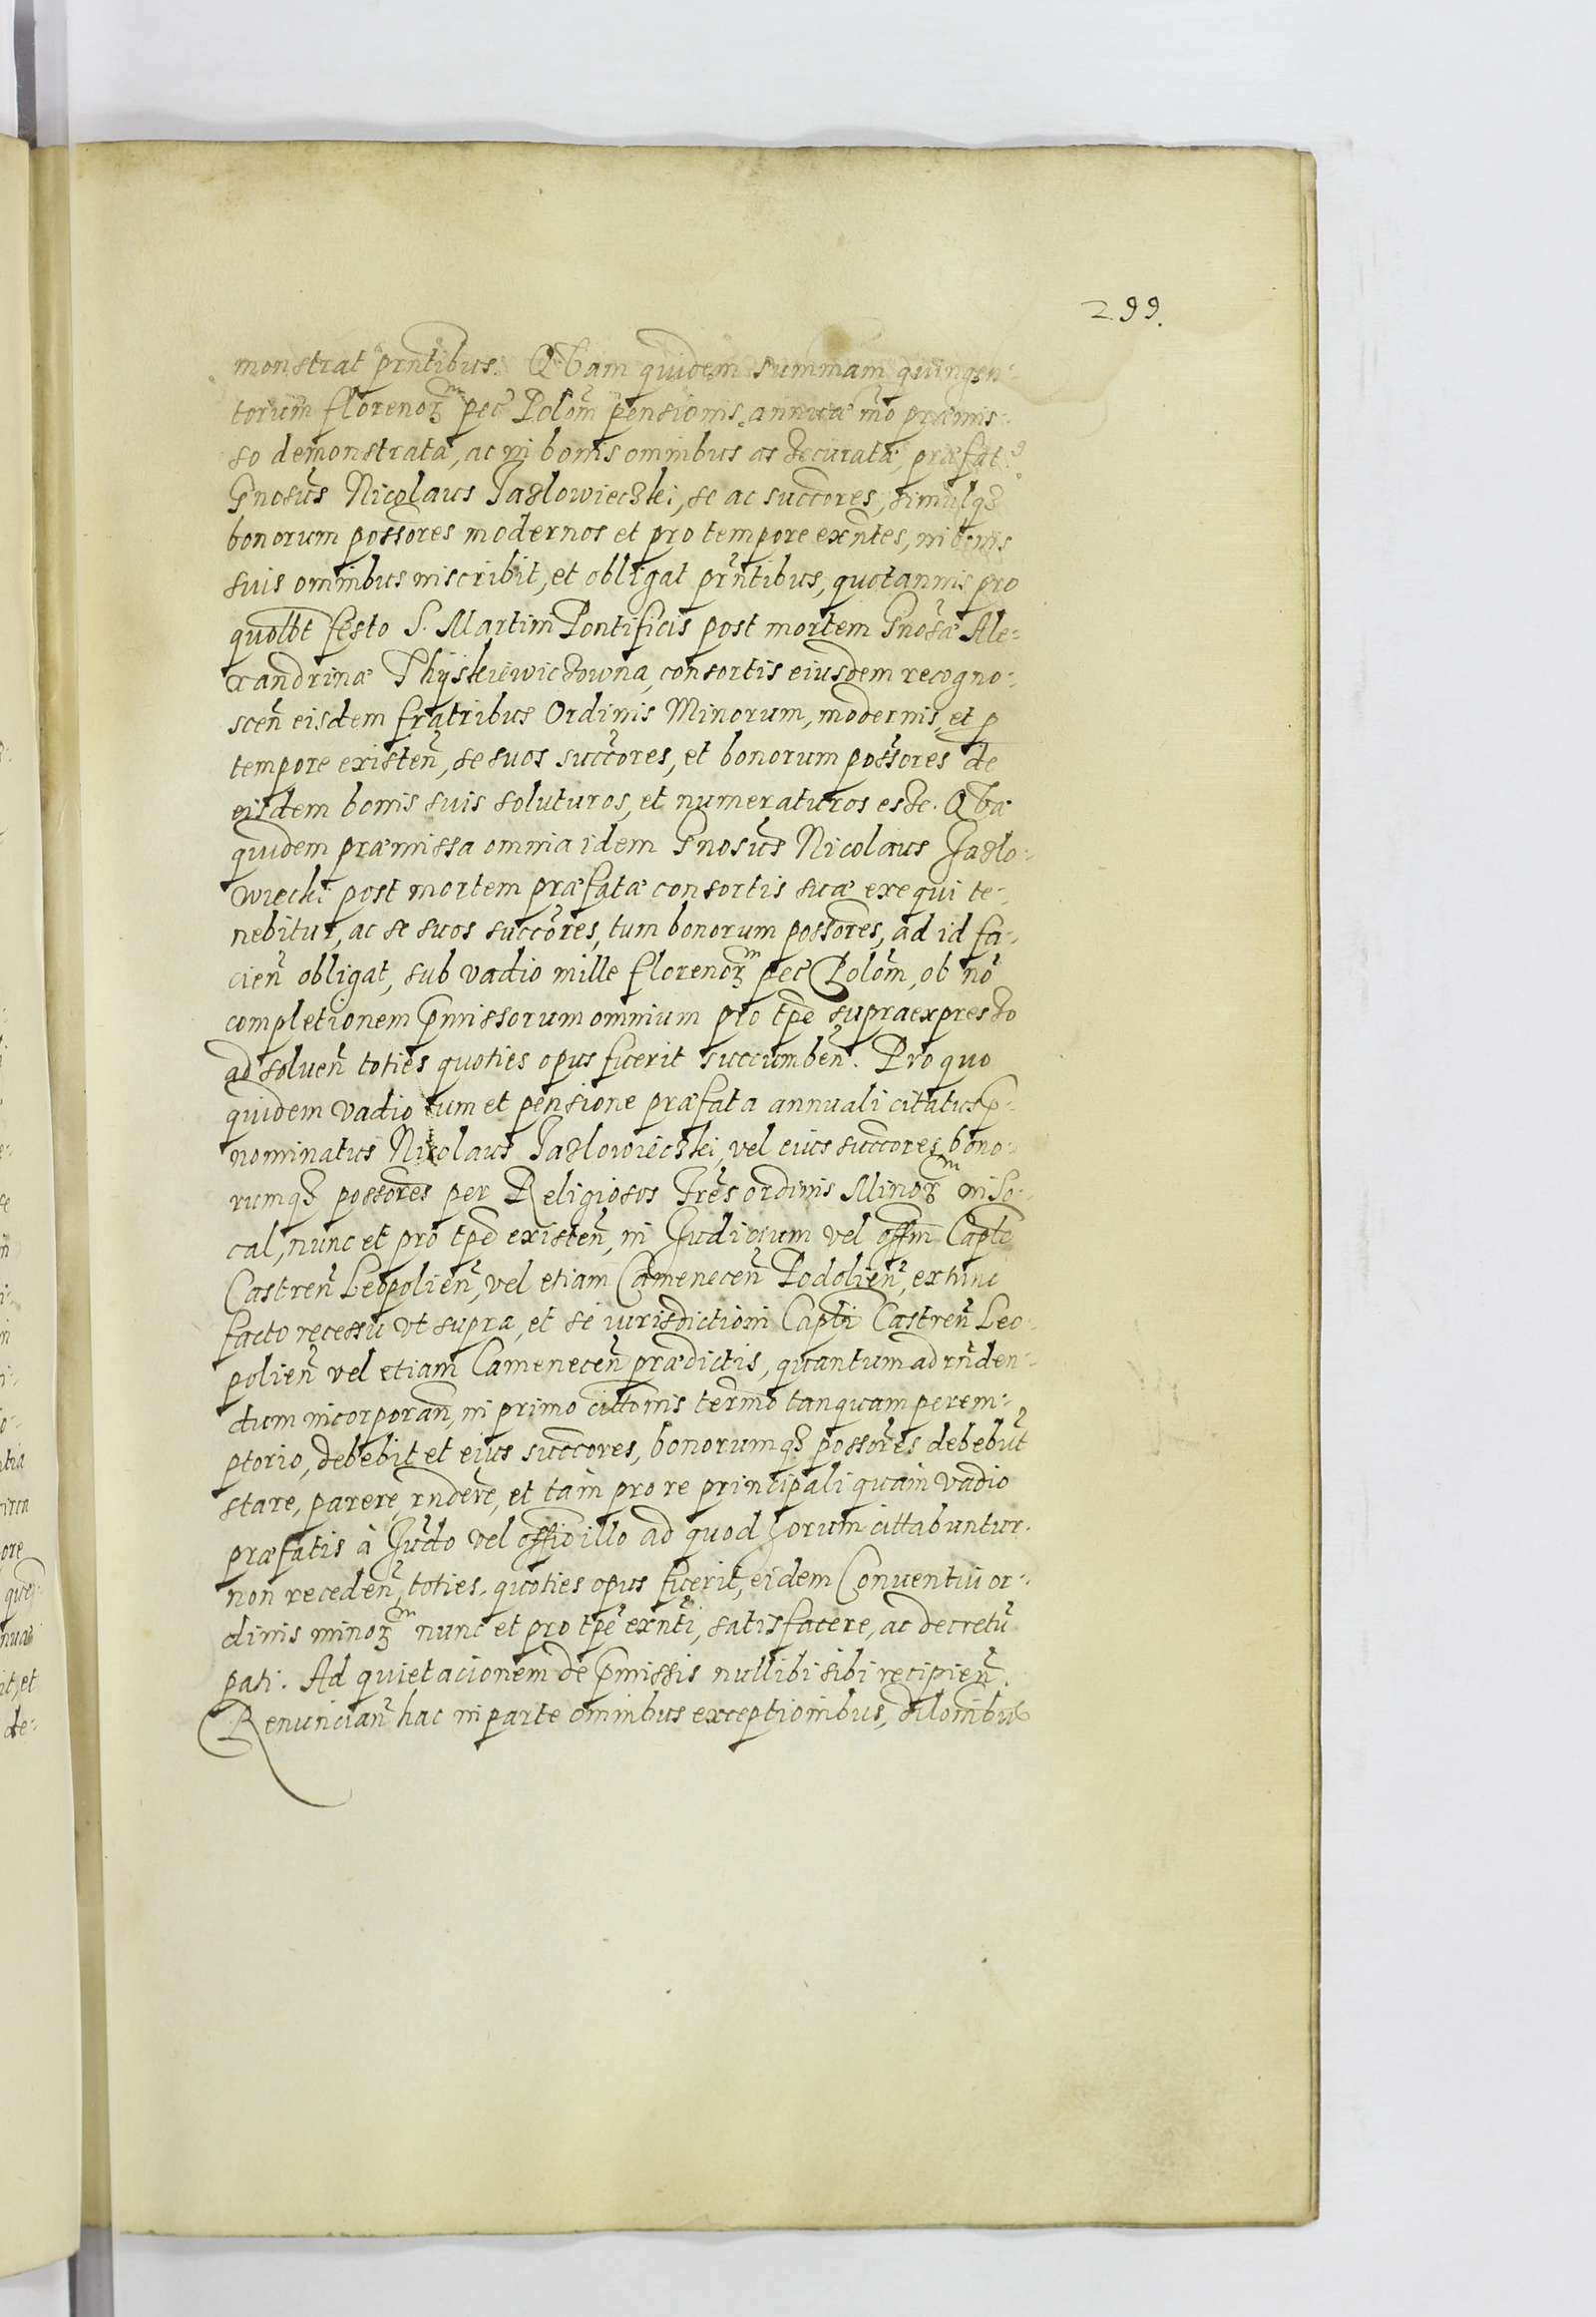 299.
monstrat prñtibus. Quam quidem summam quingen-
torum florenorᵐ pec̃ Polõm pensionis annuæ m̃o præmis-
so demonstratæ, ac in bonis omnibus assecuratæ, præfatꝰ
Gnosũs Nicolaus Jazlowieczki, se ac succõres, simulqȝ
bonorum possõres modernos et pro tempore exñtes, in bonis
suis omnibus inscribit, et obligat pr̃ntibus, quotannis pro
quolbt festo S. Martini Pontificis post mortem Gnosæ Ale-
xandrinæ Thÿskiewiczowna, consortis eiusdem recogno-
sceñ eisdem fratribus Ordinis Minorum, modernis, et p
tempore existeñ, se suos succõres, et bonorum possõres de
eisdem bonis suis soluturos, et numeraturos esse. Quæ
quidem præmissa omnia idem Gnosũs Nicolaus Jazlo-
wiecki post mortem præfatæ consortis suæ exequi te-
nebitur, ac se suos succõres, tum bonorum possõres, ad id fa-
cieñ obligat, sub vadio mille florenorᵐ pec̃ Polõm, ob nõ
completionem p̃missorum omnium pro tp̃e supraexpresso
ad solueñ toties quoties opus fuerit succumbeñ. Pro quo
quidem vadio tum et pensione præfata annuali citatus p-
nominatus Nicolaus Jazlowieczki, vel eius succõres bono-
rumqȝ possõres per Religiosos Fres ordinis Minorᵐ in So-
cal, nunc et pro tp̃e existeñ, in Judicium vel offm̃ Capte
Castreñ Leopolieñ, vel etiam Cameneceñ Podolieñ, ex tunc
facto recessu vt supra, et se iurisdictioni Capti Castreñ Leo-
polieñ vel etiam Cameneceñ prædictis, quantum ad rñden-
dum incorporañ, in primo citt̃onis term̃o tanquam perem-
ptorio, debebit et eius succõres, bonorumqȝ possõres debebũt
stare, parere, rndere, et tam pro re principali quam vadio
præfatis à Judo vel offio illo ad quod horum cittabuntur.
non recedeñ, toties, quoties opus fuerit, eidem Conuentui or-
dinis minorᵐ nunc et pro tp̃e exñti, satisfacere, ac decretũ
pati. Ad quietacionem de p̃missis nullibi sibi recipieñ.
Renunciañ hac in parte omnibus exceptionibus, dilom̃bus